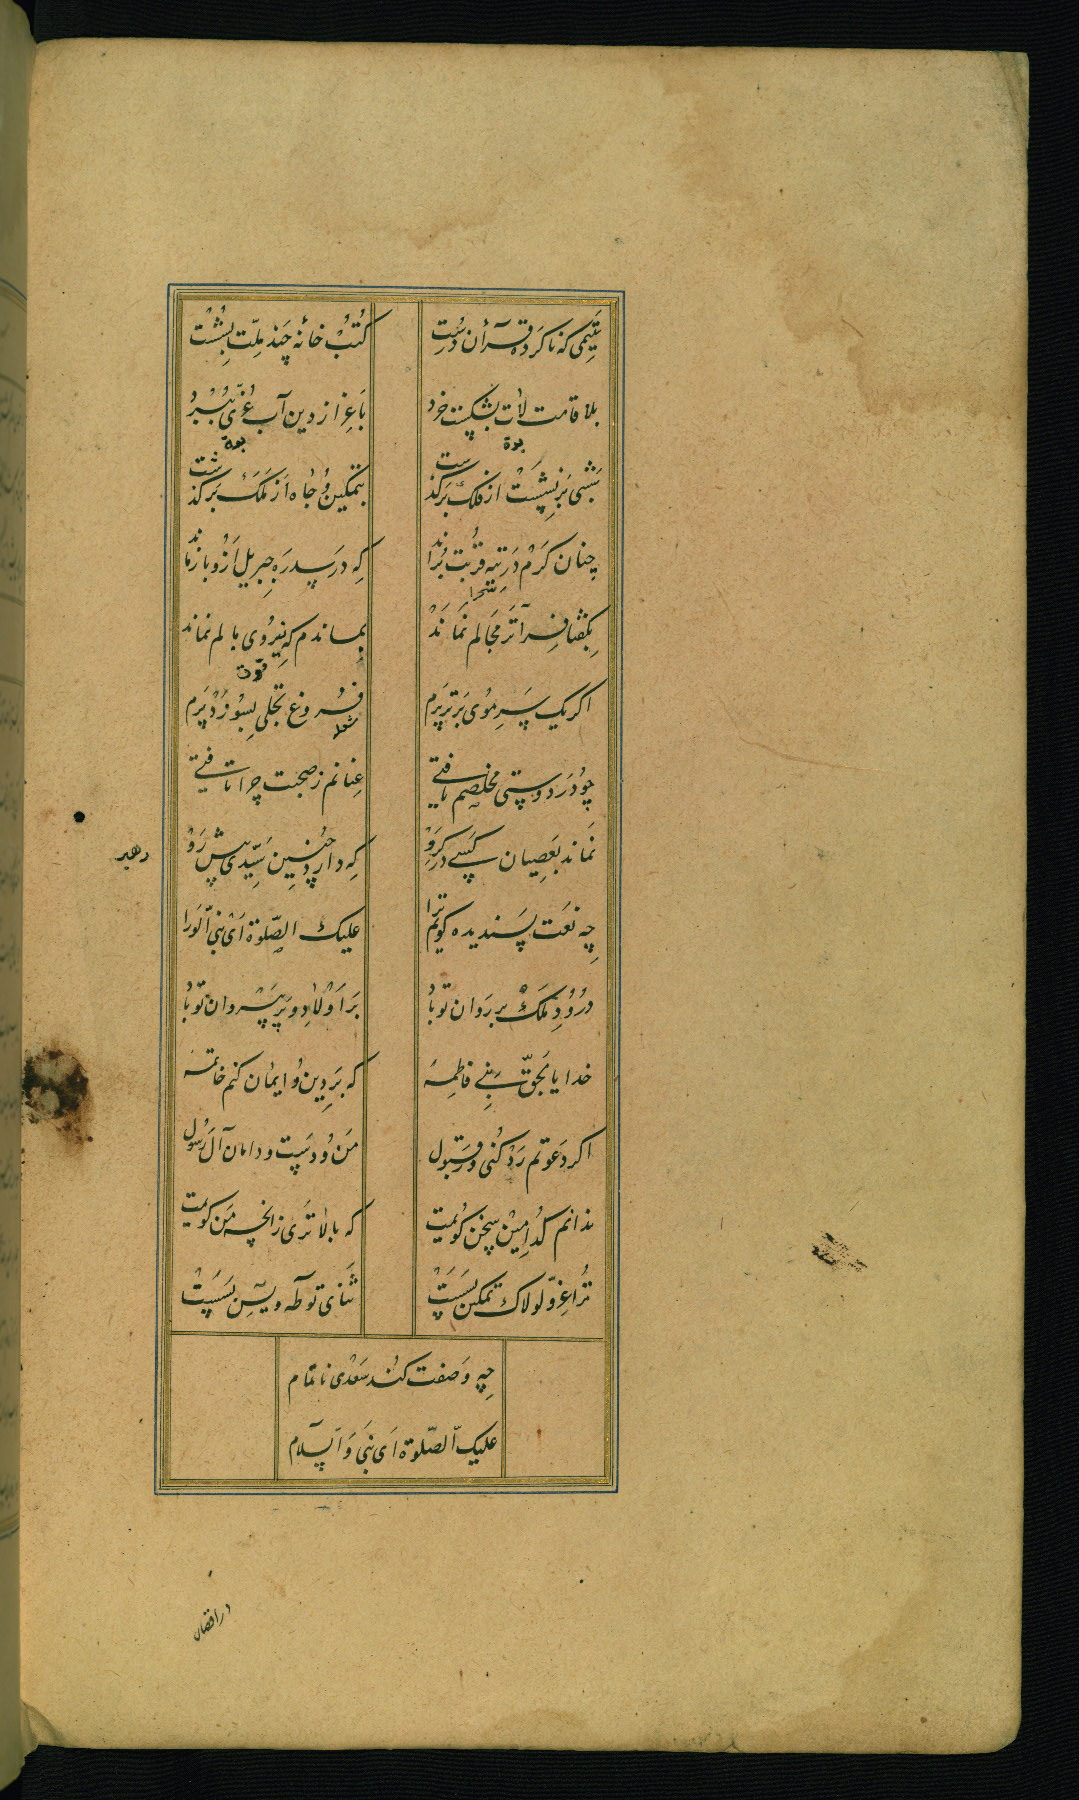 یتیمی که ناکرده قرآن درست کتب خانهٔ چند ملّت بشست
بلا قامت لات بشکست خرد باعزاز دین آب عزّی ببرد
شبی برنشست از فلک برگذشت بتمکین و جاه از ملک برگذشت
چنان گرم در تیه قربت براند که در سدره جبریل ازو باز ماند
بگفتا فراتر مجالم نماند بماندم که نیروی بالم نماند
قوت
اگر یک سر موی برتر پرم فروغ تجلی بسوزد پرم
چو در دوستی مخلصم یافتی عنانم ز صحبت چرا تافتی
نماند بعصیان کسی در گرو که دارد چنین سیّدی پیش رو
رهبر
چه نعت پسندیده گویم ترا علیک الصّلوة ای نبیّ الورا
درود ملک بر روان تو باد بر اولاد و بر پیروان تو باد
خدایا بحقّ بنی فاطمه که بر دین و ایمان کنم خاتمه
اگر دعوتم رد کنی ور قبول من و دست و دامان آل رسول
ندانم کدامین سخن گویمت که بالاتری زانچه من گویمت
ترا عزّ لولاک تمکین بسست ثنای تو طه و یسین بسست
چه وصفت کند سعدی ناتمام
علیک الصّلوة ای نبی والسّلام
در اقصای